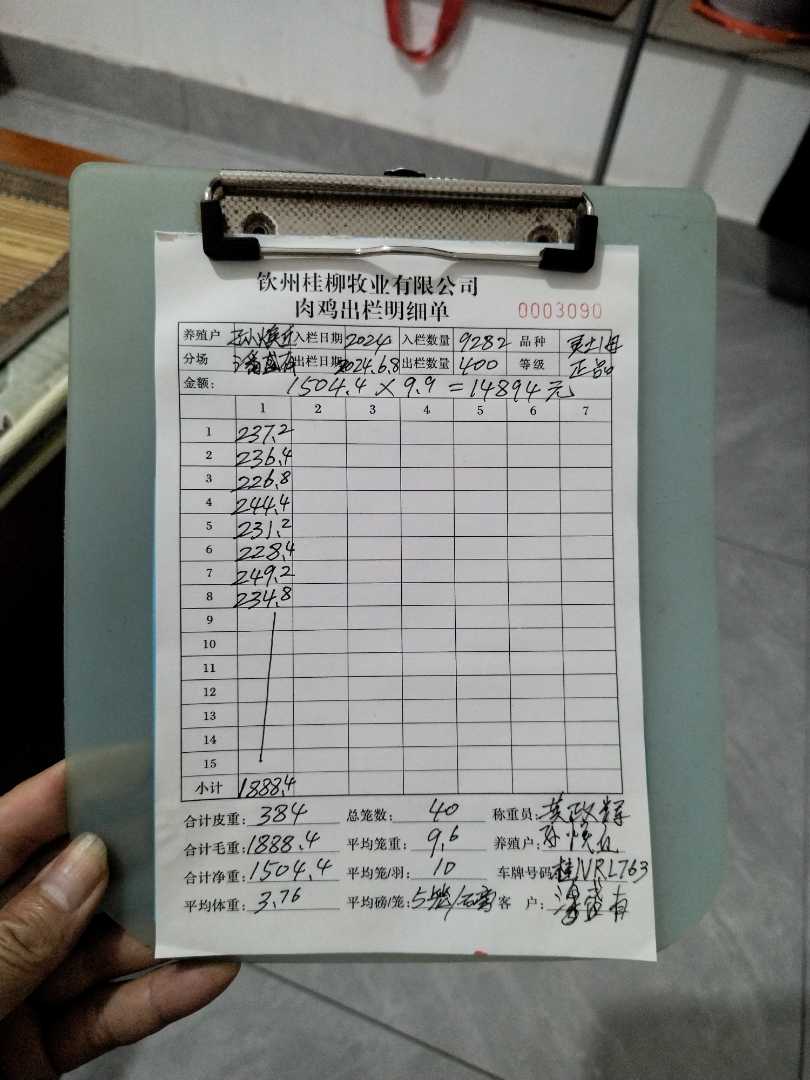 钦州桂柳牧业有限公司
肉鸡出栏明细单
0003090
养殖户 入栏日期 2024 入栏数量 9282 品种
分场 出栏日期 2024.6.8 出栏数量 400 等级 正品
金额: 1504.4 × 9.9 = 14894元
1 2 3 4 5 6 7
1 237.2
2 236.4
3 226.8
4 244.4
5 231.2
6 228.4
7 249.2
8 234.8
9
10
11
12
13
14
15
小计 1888.4
合计皮重: 384 总笼数: 40 称重员:
合计毛重: 1888.4 平均笼重: 9.6 养殖户:
合计净重: 1504.4 平均笼/羽: 10 车牌号码 桂NRL763
平均体重: 3.76 平均磅/笼: 5 客 户: